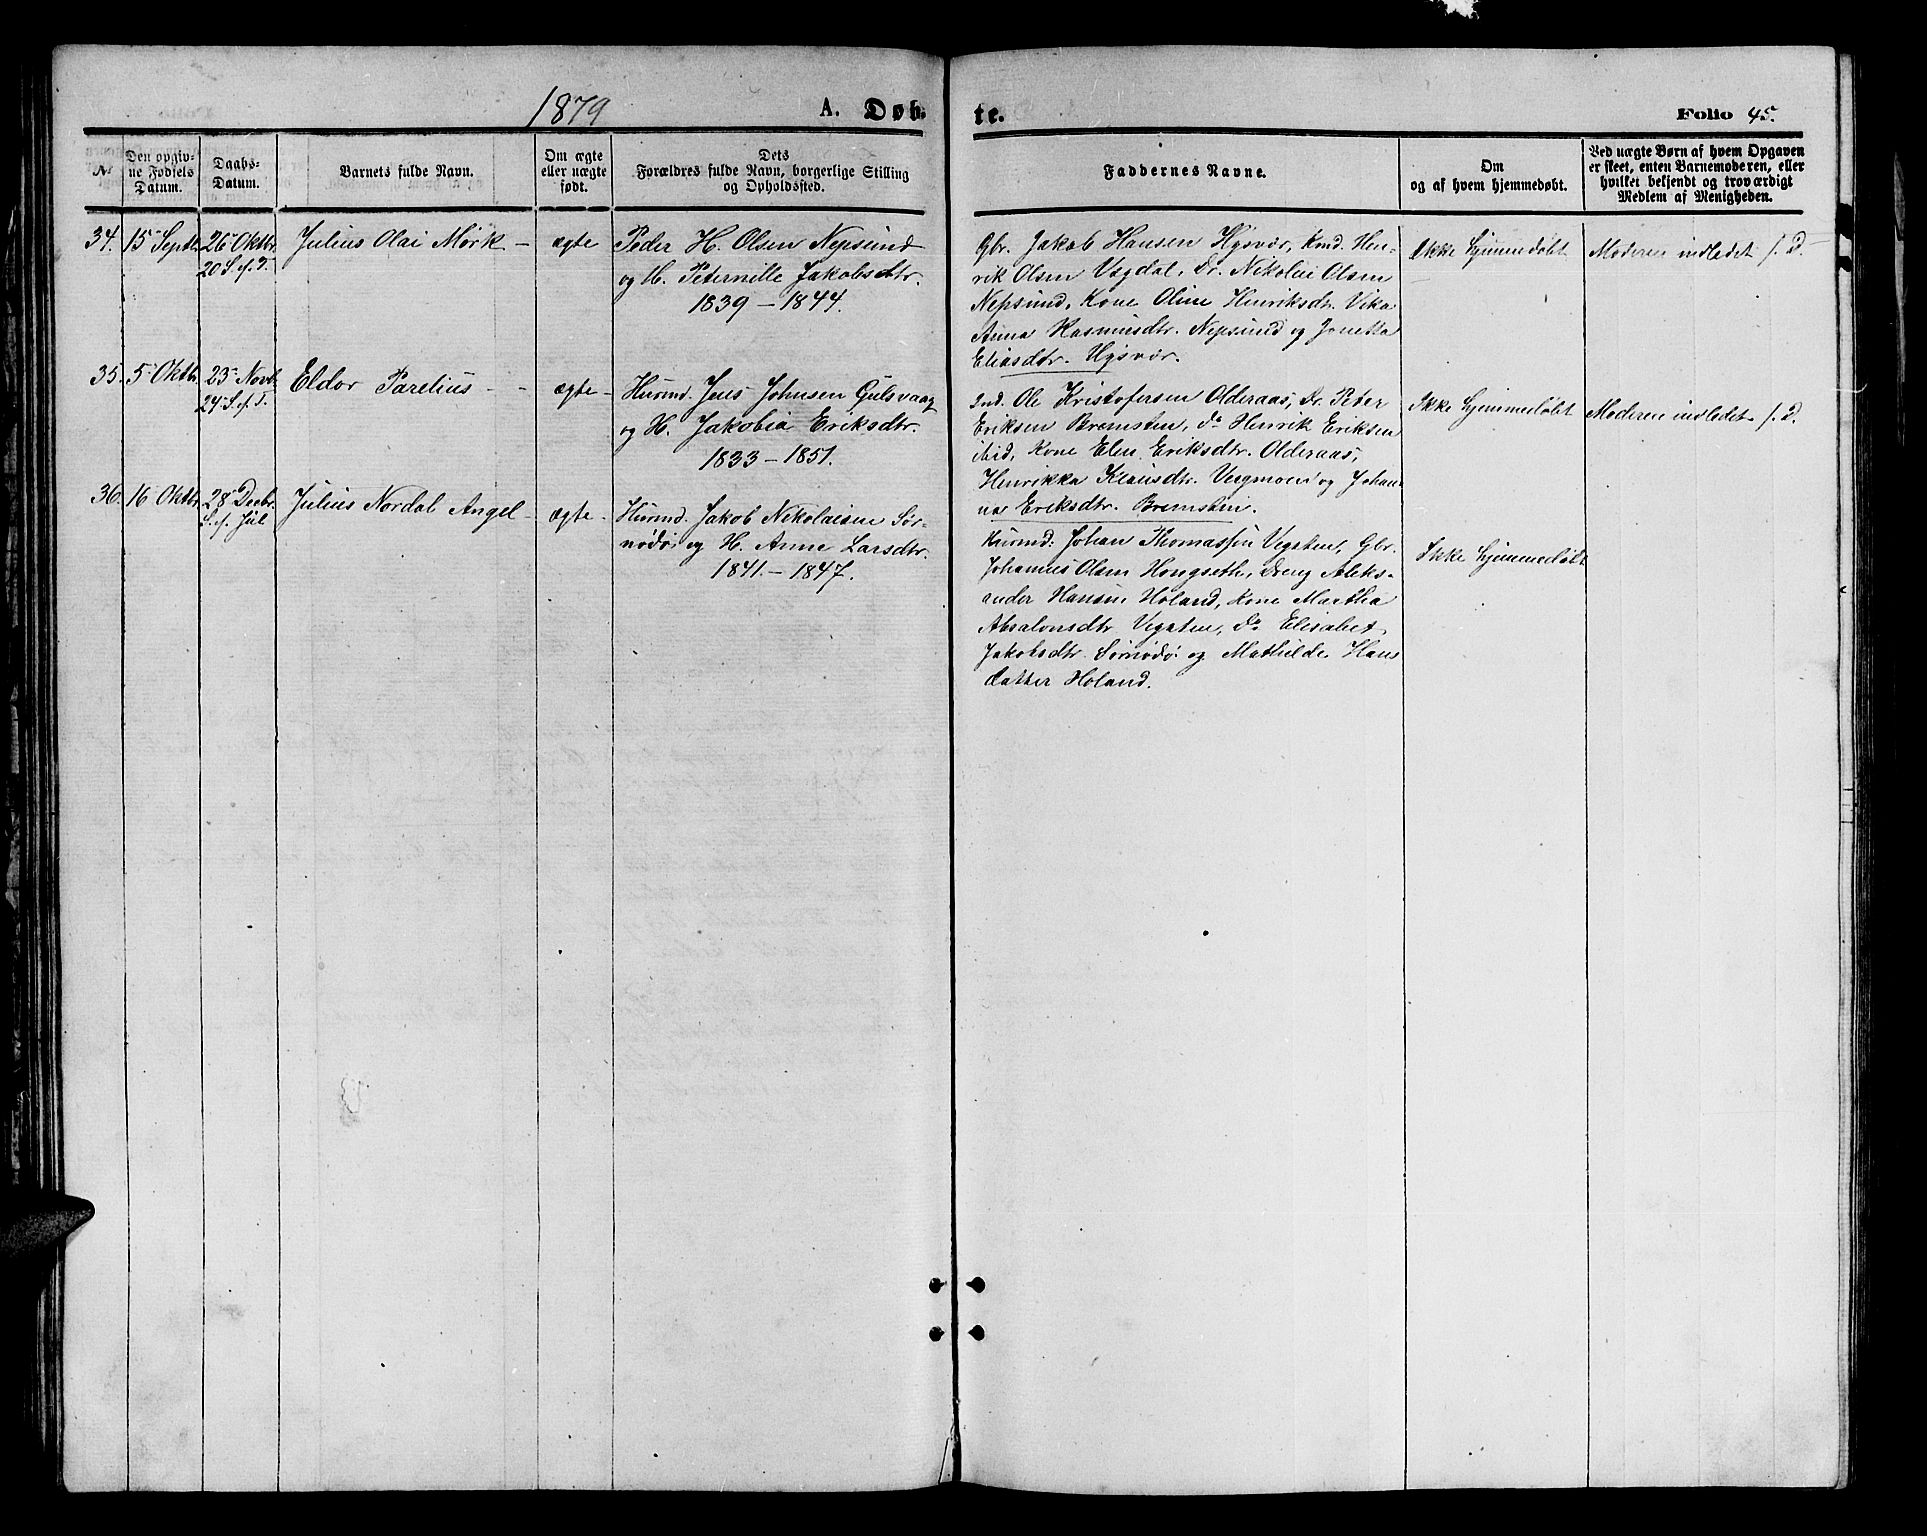 1879
A. Døb-
te.
Folio 45.
No
Den opgiv-
ne Fødsels
Datum.
Daabs-
Datum.
Barnets fulde Navn.
Om ægte
eller uægte
født.
Dets
Forældres fulde Navn, borgerlige Stilling
og Opholdssted.
Faddernes Navne.
Om
og af hvem hjemmedøbt.
Ved uægte Børn af hvem Opgaven
er skeet, enten Barnemoderen, eller
hvilket bekjendt og troværdigt
Medlem af Menigheden.
34.
15 Septb.
26 Oktbr.
20 S. e. T.
Julius Olai Mörk -
ægte
Peder H. Olsen Nepsund
og H. Peternille Jakobsdtr.
1839 - 1844.
Gbr. Jakob Hansen Hysvær, Kmd. Hen-
rik Olsen Vegdal, Dr. Nikolai Olsen
Nepsund, Kone Oline Henriksdtr. Vika
Anna Rasmusdtr. Nepsund og Jonetta
Eliasdtr. Hysvær.
Ikke hjemmedøbt
Moderen indledet s. D.
35.
5 Oktbr.
23 Novb.
24 S. e. T.
Eldor Parelius - -
ægte -
Husmd. Jens Johnsen Gulsvaag
og H. Jakobia Eriksdtr.
1833 - 1851.
Ind. Ole Kristofersen Olderaas, Dr. Peter
Eriksen Bremsten, do Henrik Eriksen
ibid, Kone Elen Eriksdtr. Olderaas,
Henrikka Klausdtr. Vegmoen og Johan-
na Eriksdtr. Bremstein.
Ikke hjemmedøbt
Moderen indledet s. D.
36.
16 Oktbr.
28 Decbr.
S. e. Jul
Julius Nordal Angel -
ægte -
Husmd. Jakob Nikolaisen Sør-
nödö og H. Anne Larsdtr.
1841. - 1847.
Husmd: Johan Thomassen Vegsten, Gbr.
Johannes Olsen Hongseth, Dreng Aleks-
ander Hansen Holand, Kone Martha
Absalonsdtr Vegsten, do Elisabet
Jakobsdtr. Sørnödö og Mathilde Hans
datter Holand.
Ikke hjemmedøbt